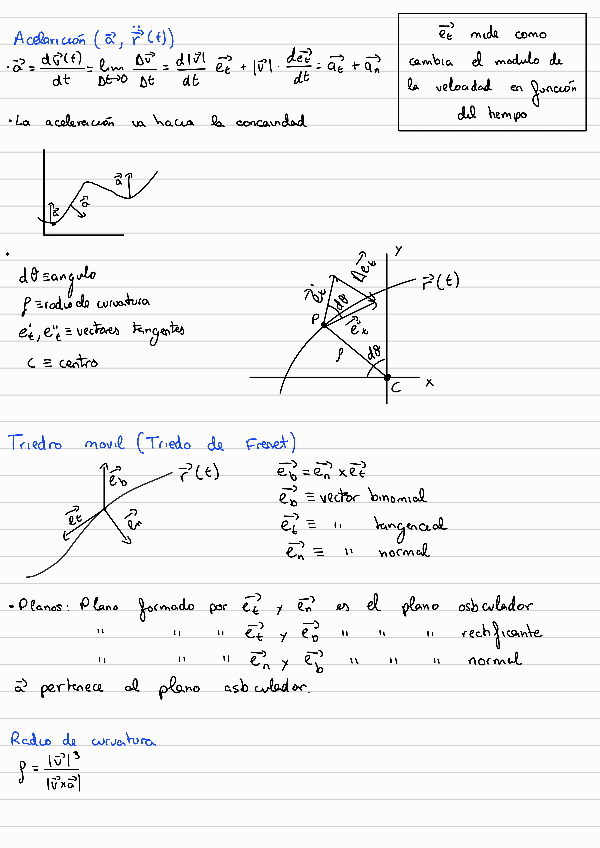 Aceleración (a⃗, r̈⃗(t))
· a⃗ = dv⃗(t)/dt = lim Δt→0 Δv⃗/Δt = d|v⃗|/dt e⃗t + |v⃗| · de⃗t/dt = a⃗t + a⃗n
e⃗t mide como
cambia el modulo de
la velocidad en función
del tiempo
· La aceleración va hacia la concavidad
a⃗ a⃗ a⃗
·
dθ ≡ angulo
ρ ≡ radio de curvatura
e⃗t', e⃗t'' ≡ vectores tangentes
C ≡ centro
y
Δe⃗t
r⃗(t)
e⃗t'
dθ
P
ρ
dθ
C
x
Triedro movil (Triedo de Frenet)
e⃗b
r⃗(t)
e⃗t
e⃗n
e⃗b = e⃗n × e⃗t
e⃗b ≡ vector binomial
e⃗t ≡ " tangencial
e⃗n ≡ " normal
· Planos: Plano formado por e⃗t y e⃗n es el plano osbculador
" " " e⃗t y e⃗b " " " rectificante
" " " e⃗n y e⃗b " " " normal
a⃗ pertenece al plano osbculador.
Radio de curvatura
ρ = |v⃗|³ / |v⃗×a⃗|